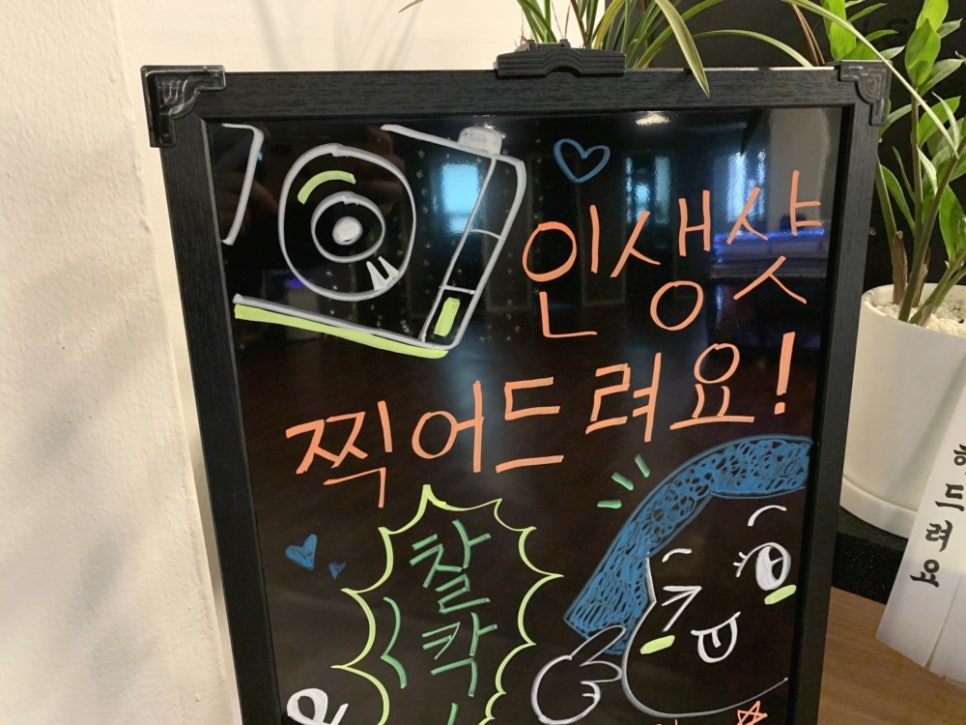 인생샷
찍어드려요!
찰
칵
드려요